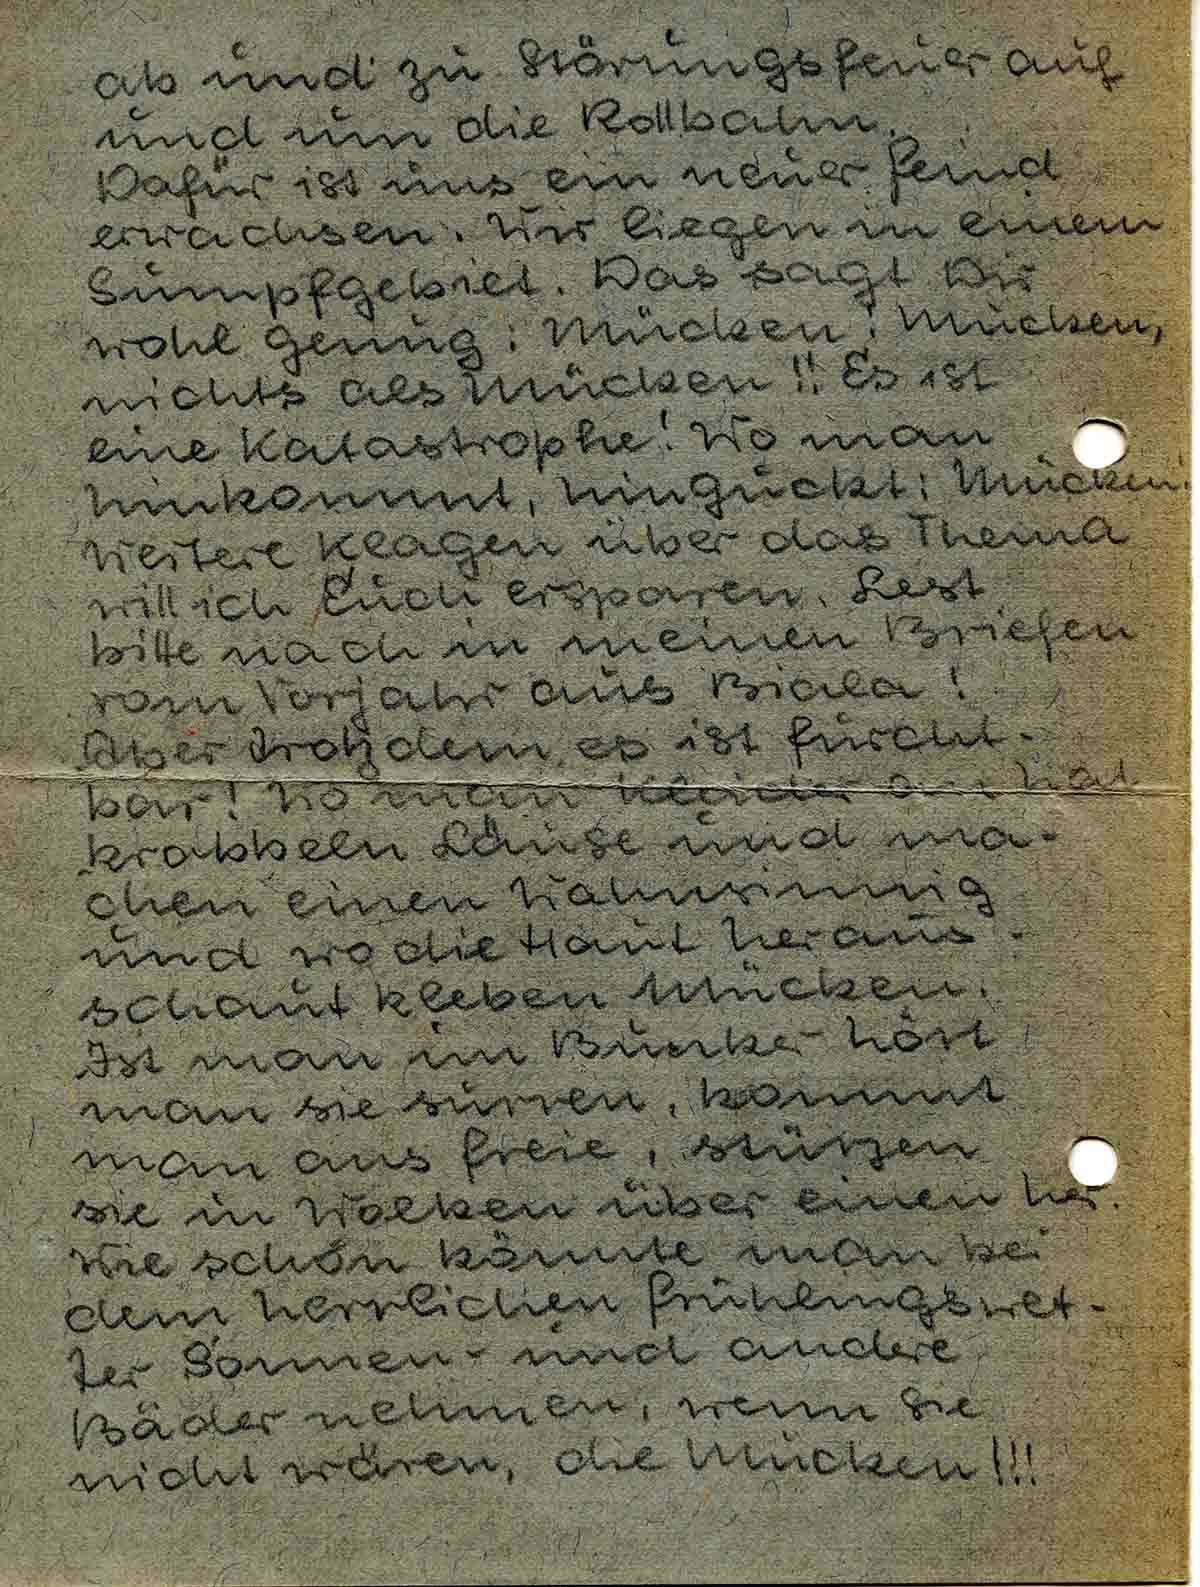 ab und zu Störungsfeuer auf
und um die Rollbahn.
Dafür ist uns ein neuer Feind
erwachsen. Wir liegen in einem
Sumpfgebiet. Das sagt Dir
wohl genug: Mücken! Mücken,
nichts als Mücken!! Es ist
eine Katastrophe! Wo man
hinkommt, hinguckt: Mücken!
Weitere Klagen über das Thema
will ich Euch ersparen. Lest
bitte nach in meinen Briefen
vom Vorjahr aus Biala!
Aber trotzdem es ist furcht-
bar! Wo man Kleider an hat
krabbeln Läuse und ma-
chen einen Wahnsinnig
und wo die Haut heraus-
schaut kleben Mücken.
Ist man im Bunker hört
man sie surren, kommt
man aus freie, stürzen
sie in Wolken über einen her.
Wie schön könnte man bei
dem herrlichen Frühlingswet-
ter Sonnen- und andere
Bäder nehmen, wenn sie
nicht wären, die Mücken!!!